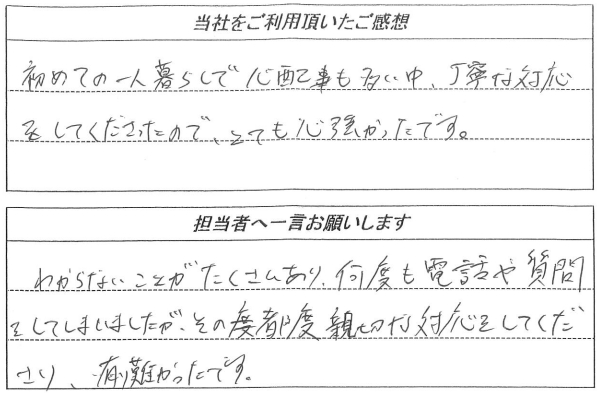 当社をご利用頂いたご感想
初めての一人暮らしで心配事も多い中、丁寧な対応
をしてくださったので、とても心強かったです。
担当者へ一言お願いします
わからないことがたくさんあり、何度も電話や質問
をしてしまいましたが、その度都度親切な対応をしてくだ
さり、有難かったです。